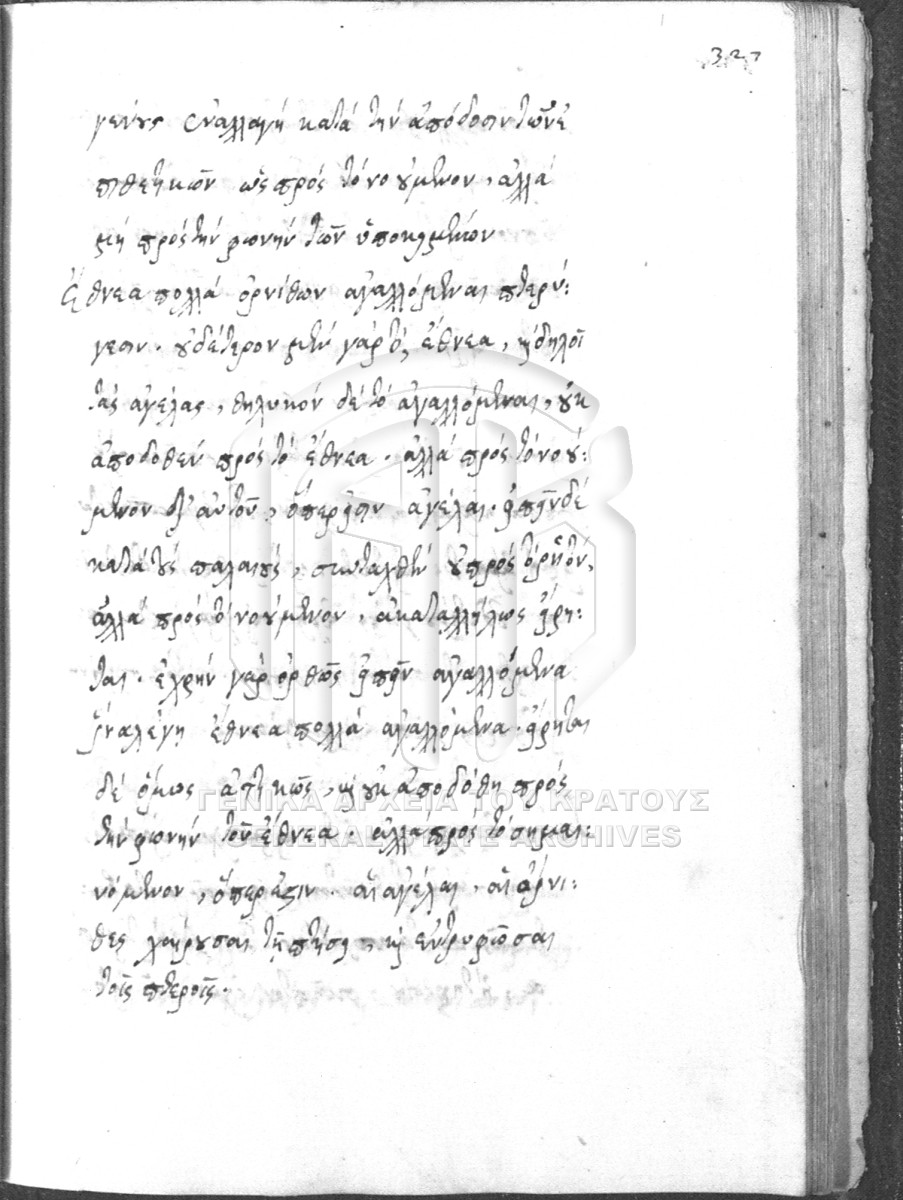 327
γένους ἐναλλαγή κατά τήν ἀπόδοσιν τῶν ἐ
πιθετικῶν ὡς πρός τό νοούμενον, ἀλλά
μή πρός τήν φωνήν τῶν ὑποκειμένων
Ἔθνεα πολλά ὀρνίθων ἀγαλλόμεναι πτερύ:
γεσιν. οὐδέτερον μέν γάρ τό, ἔθνεα, καί δηλοῖ
τάς ἀγέλας, θηλυκόν δέ τό ἀγαλλόμεναι, οὐκ
ἀποδοθέν πρός τό ἔθνεα. ἀλλά πρός τό νοού:
μενον δι' αὐτοῦ, ὅπερ εἰσίν ἀγέλαι. εἰπεῖν δέ
κατά τούς παλαιούς, συνταχθέν οὐ πρός τό ῥητόν,
ἀλλά πρός τό νοούμενον, ἀκαταλλήλως εἴρη:
ται. ἐχρῆν γάρ ὀρθῶς εἰπεῖν ἀγαλλόμενα
ἵνα λέγῃ ἔθνεα πολλά ἀγαλλόμενα. εἴρηται
δέ ὅμως ἀττικῶς, καί οὐκ ἀπεδόθη πρός
τήν φωνήν τοῦ ἔθνεα. ἀλλά πρός τό σημαι:
νόμενον, ὅπερ εἰσίν. αἱ ἀγέλαι, αἱ ὄρνι:
θες χαίρουσαι τῇ πτήσει, καί ἐντρυφῶσαι
τοῖς πτεροῖς.
ΓΕΝΙΚΑ ΑΡΧΕΙΑ ΤΟΥ ΚΡΑΤΟΥΣ
GENERAL STATE ARCHIVES